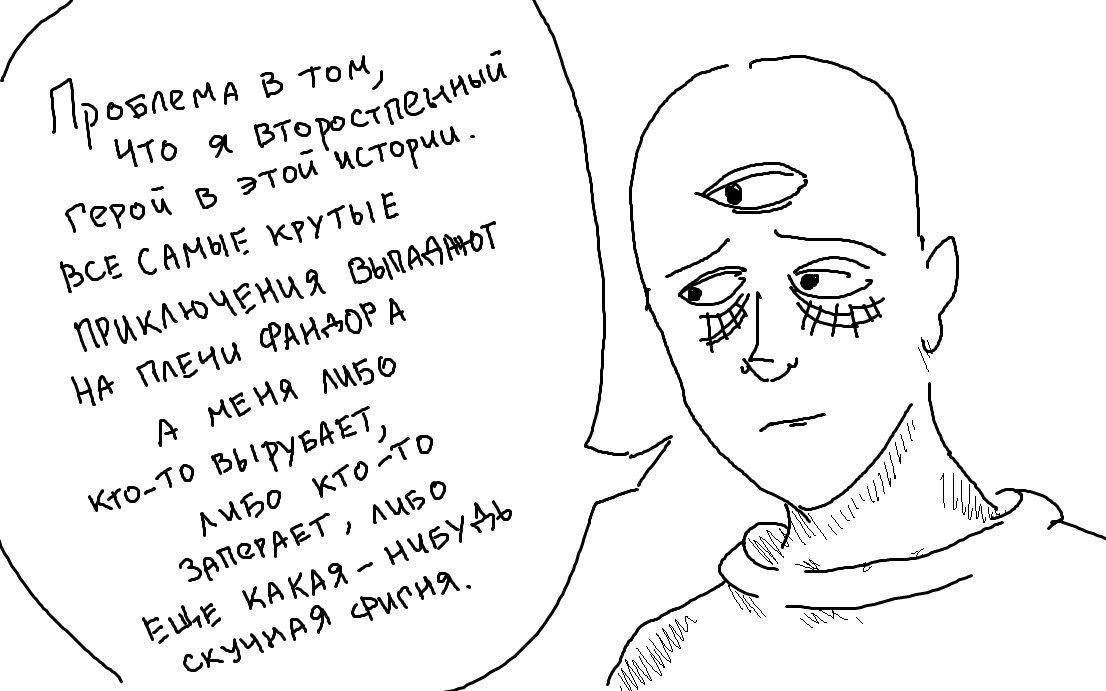 Проблема в том,
что я второстпенный
герой в этой истории.
ВСЕ САМЫЕ КРУТЫЕ
ПРИКЛЮЧЕНИЯ ВЫПАДАЮТ
НА ПЛЕЧИ ФАНДОРА
А МЕНЯ ЛИБО
КТО-ТО ВЫРУБАЕТ,
ЛИБО КТО-ТО
ЗАПЕРАЕТ, ЛИБО
ЕЩЕ КАКАЯ-НИБУДЬ
СКУЧНАЯ ФИГНЯ.